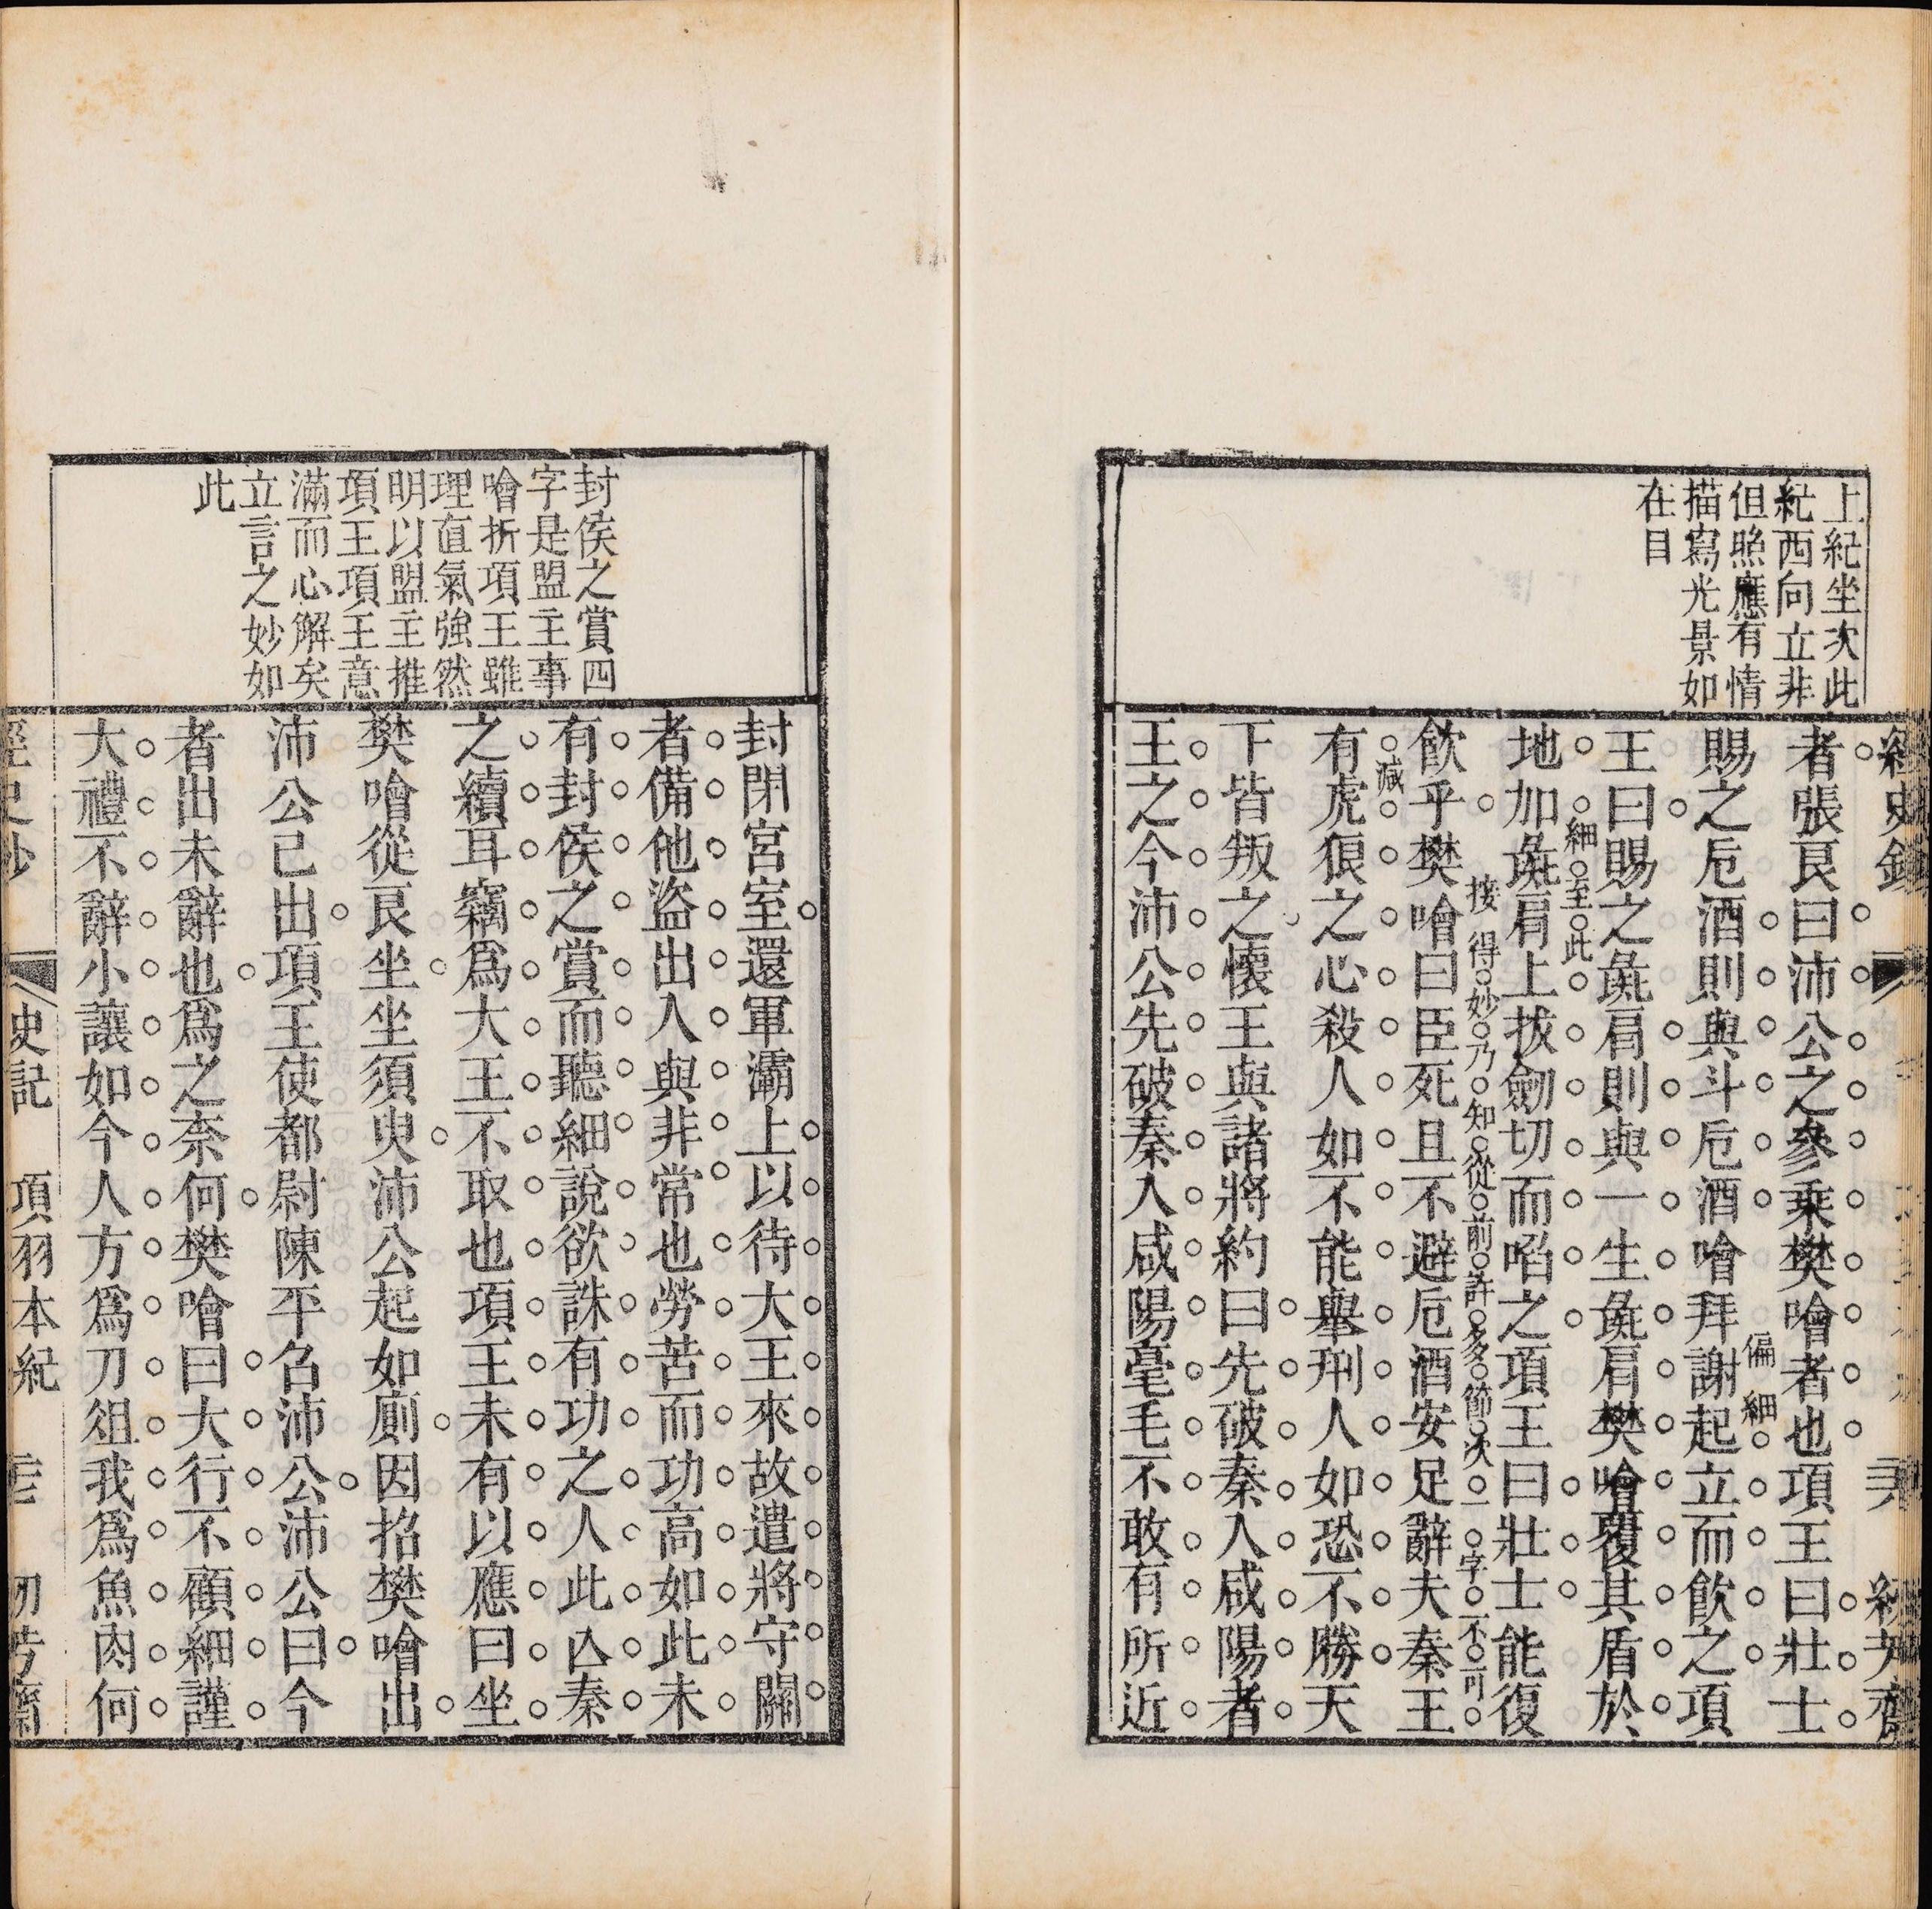 上紀坐次此
紀西向立非
但照應有情
描寫光景如
在目
者張良曰沛公之參乗樊噲者也項王曰壯士
賜之卮酒則與斗卮酒噲拜謝起立而飲之項
偏細
王曰賜之彘肩則與一生彘肩樊噲覆其盾於
地加彘肩上拔劒切而啗之項王曰壯士能復
細至此
飲乎樊噲曰臣死且不避卮酒安足辭夫秦王
接得妙乃知從前許多節次一字不可減
有虎狼之心殺人如不能舉刑人如恐不勝天
下皆叛之懷王與諸將約曰先破秦入咸陽者
王之今沛公先破秦入咸陽毫毛不敢有所近
封侯之賞四
字是盟主事
噲折項王雖
理直氣強然
明以盟主推
項王項王意
滿而心解矣
立言之妙如
此
封閉宮室還軍灞上以待大王來故遣將守關
者備他盜出入與非常也勞苦而功高如此未
有封侯之賞而聽細說欲誅有功之人此亾秦
之續耳竊爲大王不取也項王未有以應曰坐
樊噲從良坐坐須臾沛公起如廁因招樊噲出
沛公已出項王使都尉陳平召沛公沛公曰今
者出未辭也爲之奈何樊噲曰大行不顧細謹
大禮不辭小讓如今人方爲刀俎我爲魚肉何
史記 項羽本紀